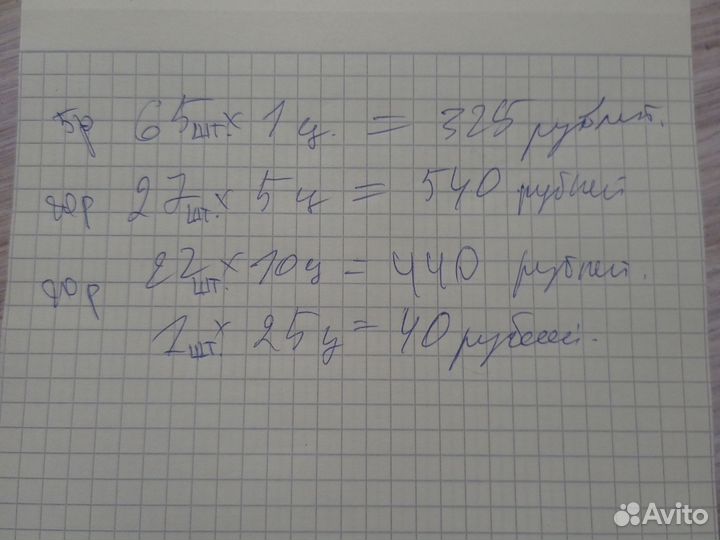 5р 65 шт. x 1 ц. = 325 рублей.
20р 27 шт. x 5 ц = 540 рублей
20р 22 шт. x 10 ц = 440 рублей.
1 шт. x 25 ц = 40 рублей.
Avito